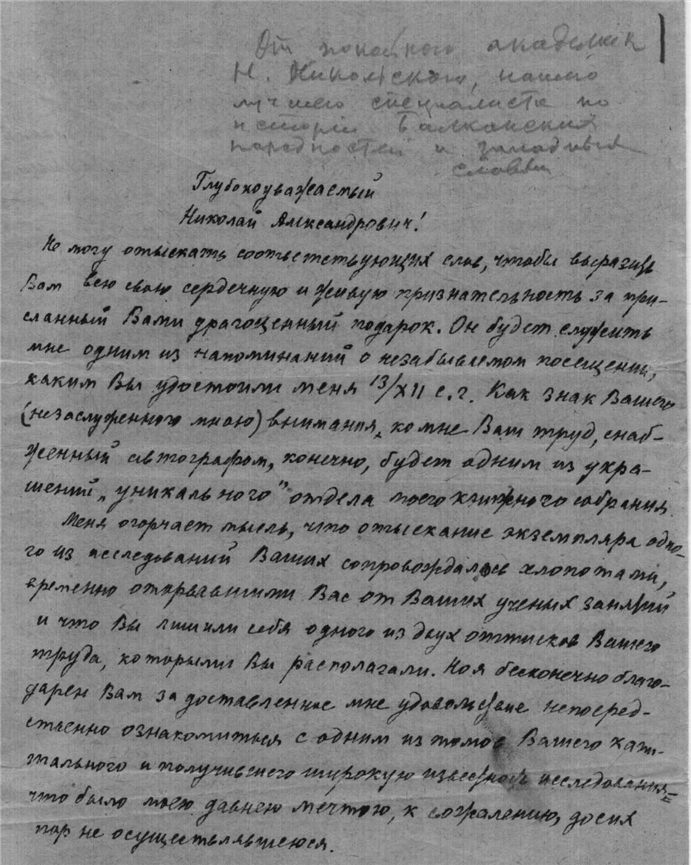 От покойного академика
Н. Никольского, нашего
лучшего специалиста по
истории Балканских
народностей и западных
славян
Глубокоуважаемый
Николай Александрович!
Не могу отыскать соответствующих слов, чтобы выразить
Вам всю свою сердечную и живую признательность за при-
сланный Вами драгоценный подарок. Он будет служить
мне одним из напоминаний о незабываемом посещении,
каким Вы удостоили меня 13/XII с.г. Как знак Вашего
(незаслуженного мною) внимания, ко мне Ваш труд, снаб-
женный автографом, конечно, будет одним из укра-
шений „уникального" отдела моего книжного собрания.
Меня огорчает мысль, что отыскание экземпляра одно-
го из исследований Ваших сопровождалось хлопотами,
временно оторвавшими Вас от Ваших ученых занятий
и что Вы лишили себя одного из двух оттисков Вашего
труда, которыми Вы располагали. Но я бесконечно благо-
дарен Вам за доставленное мне удовольствие непосред-
ственно ознакомиться с одним из томов Вашего капи-
тального и получившего широкую известность исследования=
что было моею давнею мечтою, к сожалению, до сих
пор не осуществлявшеюся.